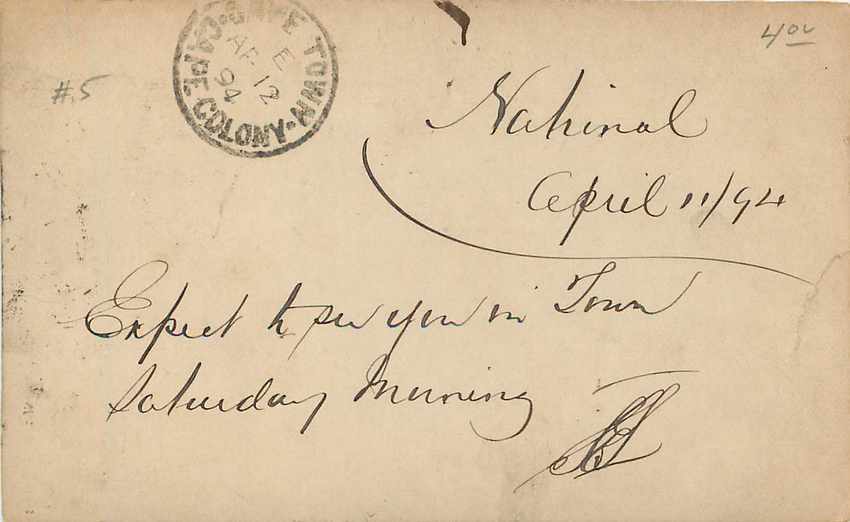 CAPE TOWN · CAPE COLONY ·
E
AP 12
94
400
#5
Nahinal
April 11/94
Expect to see you in Town
Saturday Morning